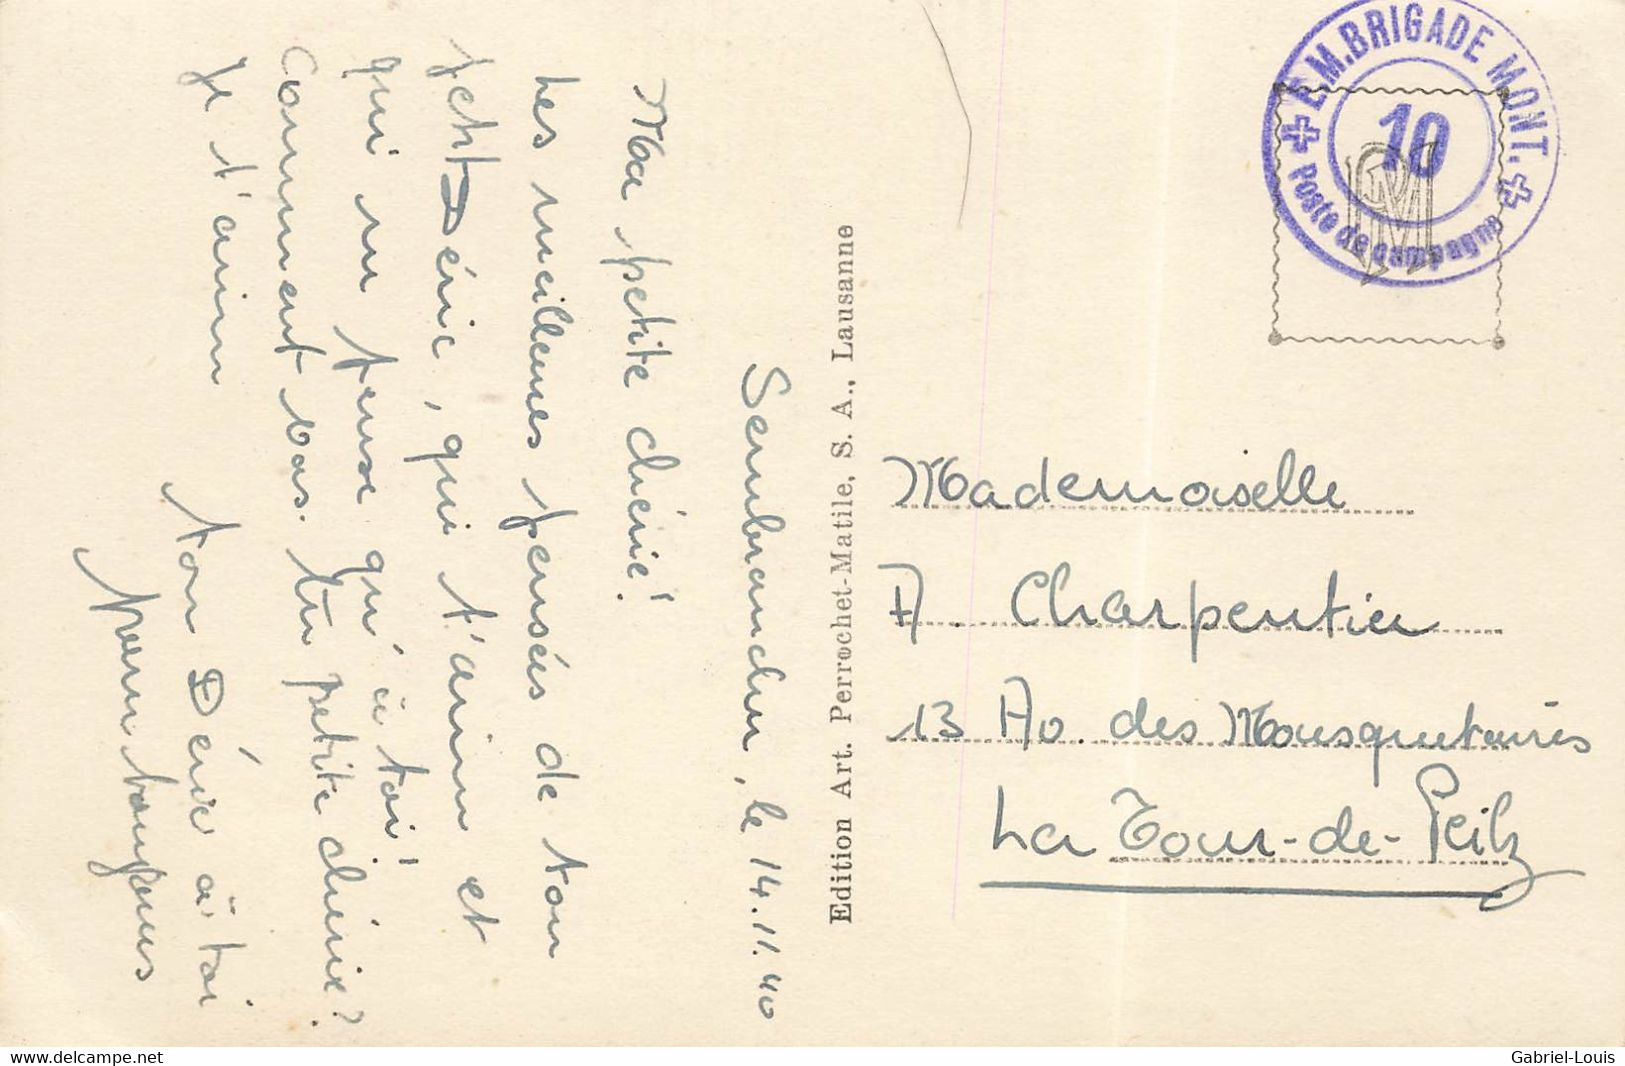 Sembrancher, le 14.11.40
Ma petite chérie!
Les meilleures pensées de ton
petit Dédé, qui t'aime et
qui ne pense qu'à toi!
Comment vas-tu petite chérie?
Je t'aime
ton Dédé à toi
pour toujours
Edition Art. Perrochet-Matile, S. A., Lausanne
E.M.BRIGADE MONT.
10
Poste de campagne
PM
Mademoiselle
A. Charpentier
13 Av. des Mousquetaires
La Tour-de-Peilz
www.delcampe.net
Gabriel-Louis